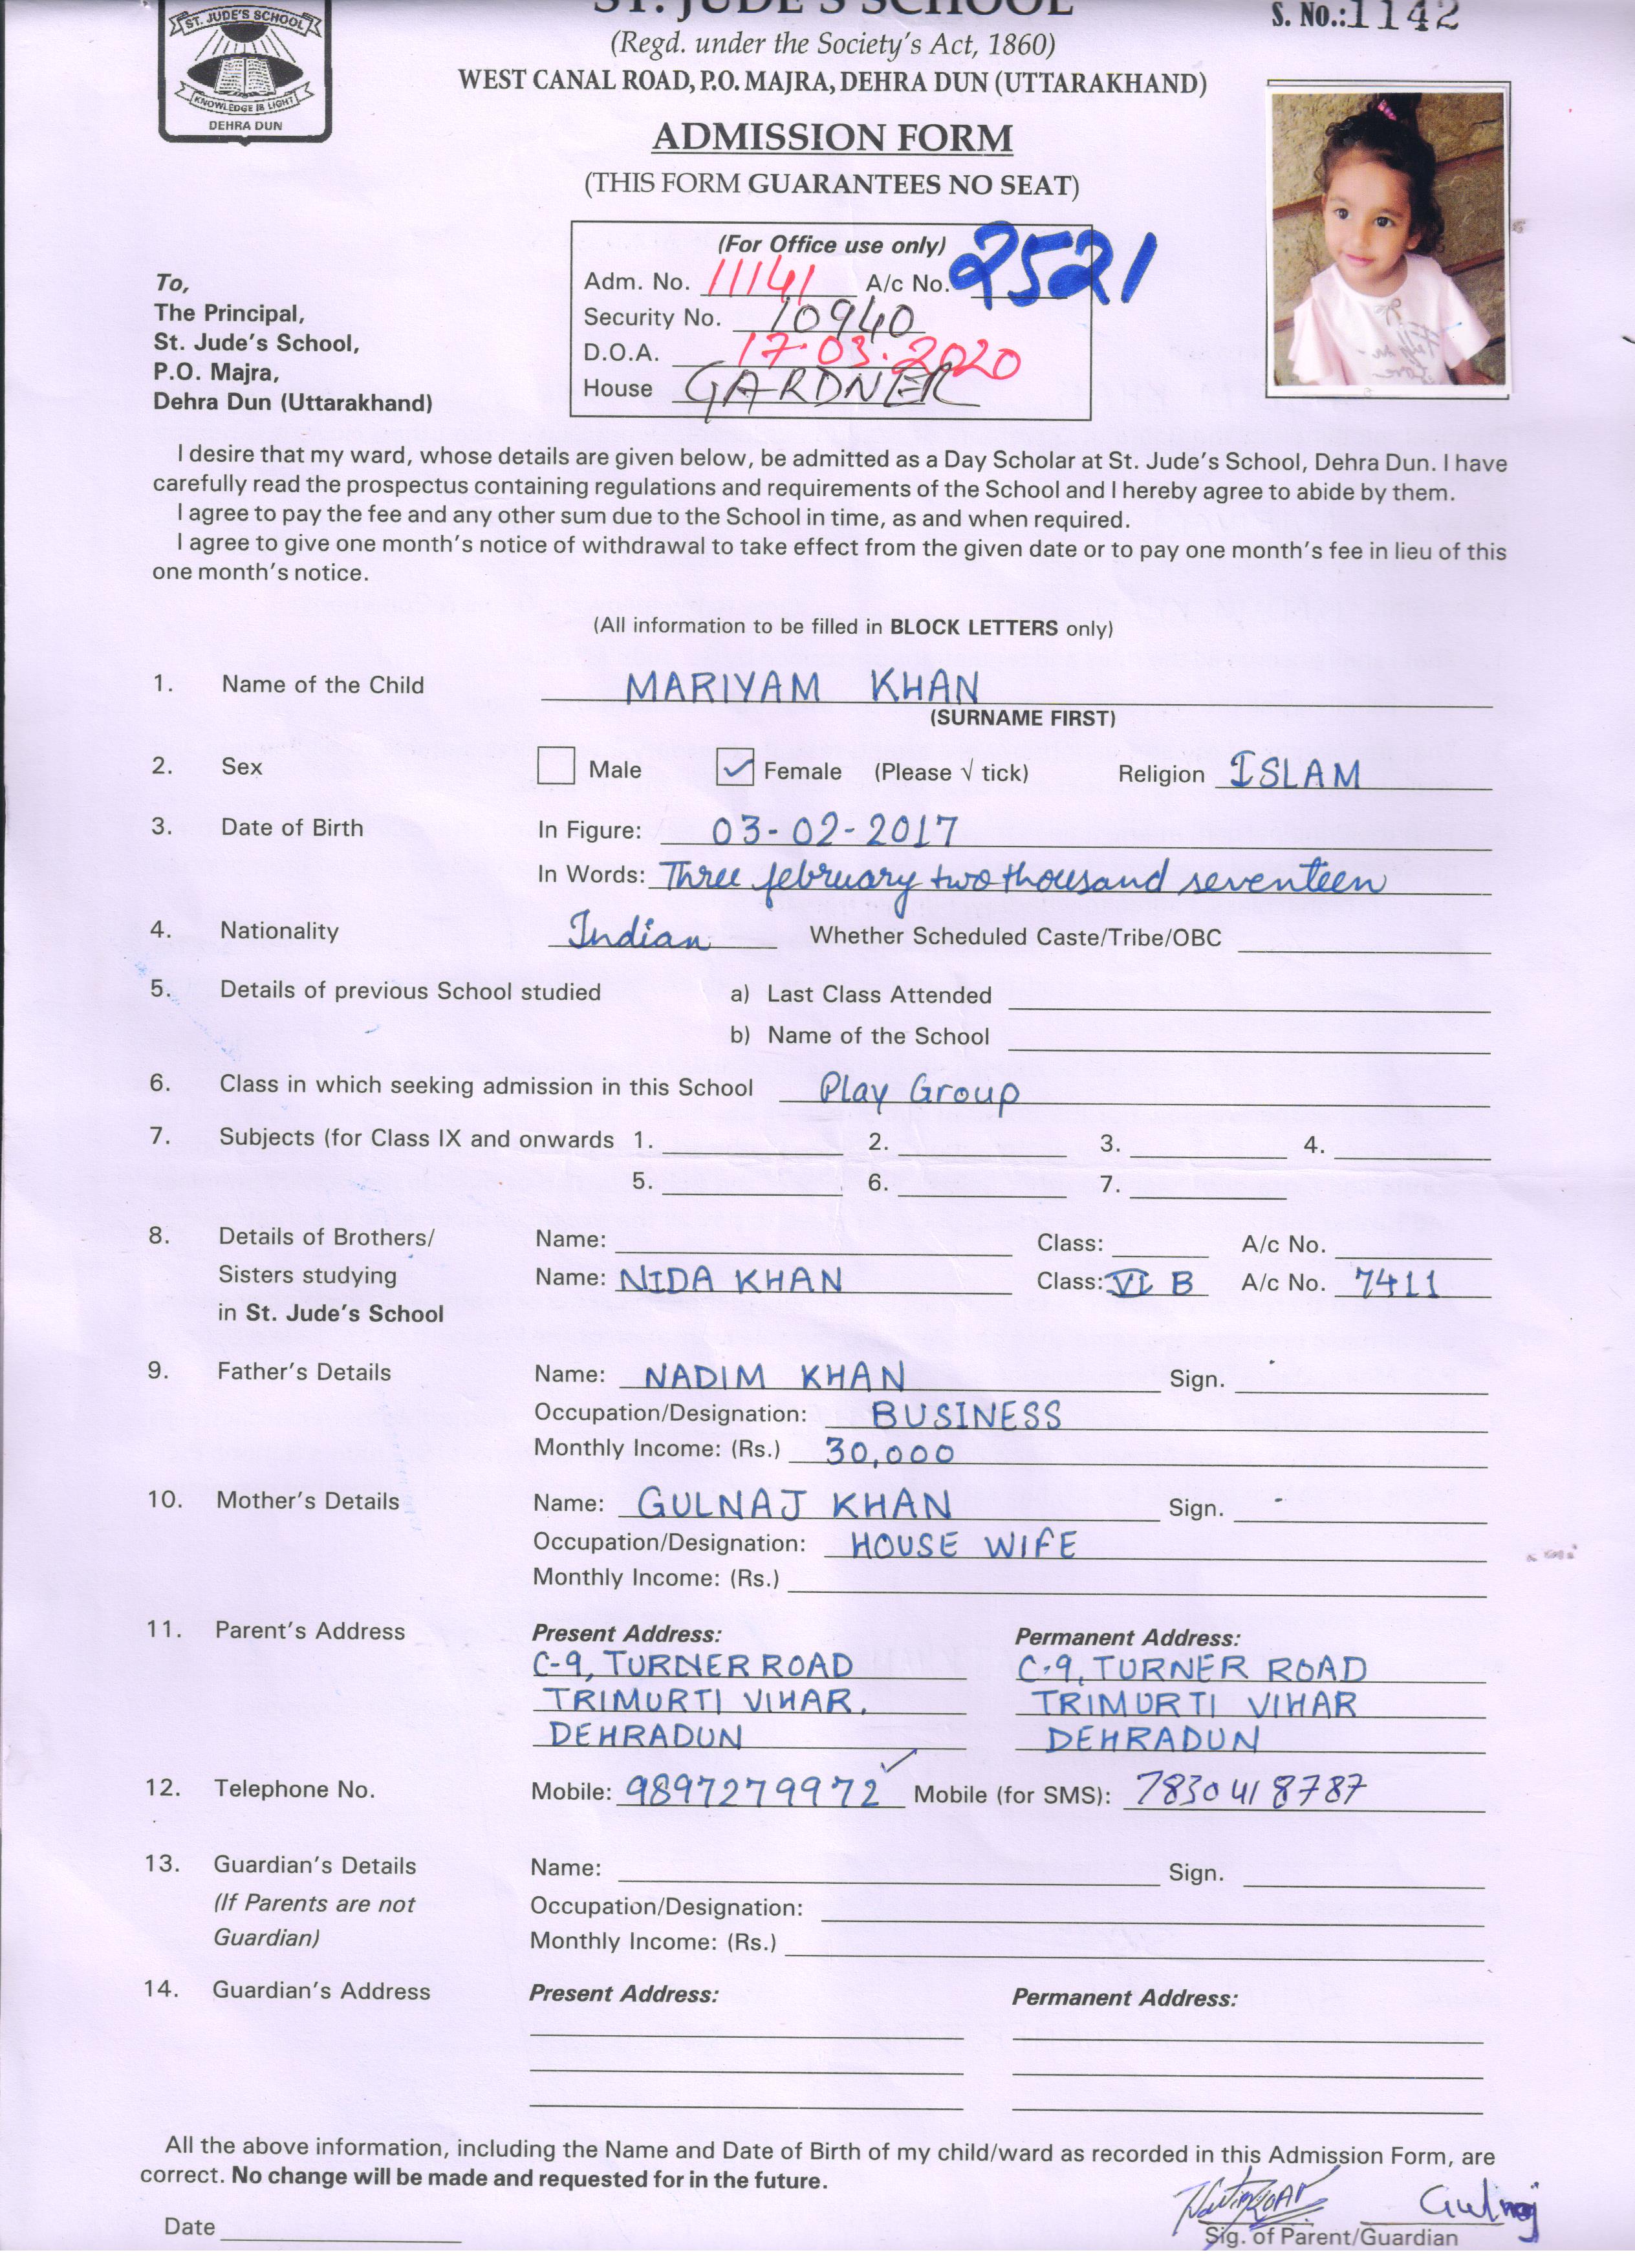 ST. JUDE'S SCHOOL
KNOWLEDGE IS LIGHT
DEHRA DUN
ST. JUDE'S SCHOOL
S. NO.:1142
(Regd. under the Society's Act, 1860)
WEST CANAL ROAD, P.O. MAJRA, DEHRA DUN (UTTARAKHAND)
ADMISSION FORM
(THIS FORM GUARANTEES NO SEAT)
(For Office use only)
Adm. No. 11141 A/c No. 2521
Security No. 10940
D.O.A. 17.03.2020
House GARDNER
To,
The Principal,
St. Jude's School,
P.O. Majra,
Dehra Dun (Uttarakhand)
I desire that my ward, whose details are given below, be admitted as a Day Scholar at St. Jude's School, Dehra Dun. I have
carefully read the prospectus containing regulations and requirements of the School and I hereby agree to abide by them.
I agree to pay the fee and any other sum due to the School in time, as and when required.
I agree to give one month's notice of withdrawal to take effect from the given date or to pay one month's fee in lieu of this
one month's notice.
(All information to be filled in BLOCK LETTERS only)
1. Name of the Child MARIYAM KHAN
(SURNAME FIRST)
2. Sex Male ✓ Female (Please √ tick) Religion ISLAM
3. Date of Birth In Figure: 03-02-2017
In Words: Three february two thousand seventeen
4. Nationality Indian Whether Scheduled Caste/Tribe/OBC
5. Details of previous School studied a) Last Class Attended
b) Name of the School
6. Class in which seeking admission in this School Play Group
7. Subjects (for Class IX and onwards 1. 2. 3. 4.
5. 6. 7.
8. Details of Brothers/ Name: Class: A/c No.
Sisters studying Name: NIDA KHAN Class: VI B A/c No. 7411
in St. Jude's School
9. Father's Details Name: NADIM KHAN Sign.
Occupation/Designation: BUSINESS
Monthly Income: (Rs.) 30,000
10. Mother's Details Name: GULNAJ KHAN Sign.
Occupation/Designation: HOUSE WIFE
Monthly Income: (Rs.)
11. Parent's Address Present Address: Permanent Address:
C-9, TURNER ROAD C-9, TURNER ROAD
TRIMURTI VIHAR, TRIMURTI VIHAR
DEHRADUN DEHRADUN
12. Telephone No. Mobile: 9897279972 ✓ Mobile (for SMS): 7830418787
13. Guardian's Details Name: Sign.
(If Parents are not Occupation/Designation:
Guardian) Monthly Income: (Rs.)
14. Guardian's Address Present Address: Permanent Address:
All the above information, including the Name and Date of Birth of my child/ward as recorded in this Admission Form, are
correct. No change will be made and requested for in the future.
Gulnaj
Date Sig. of Parent/Guardian